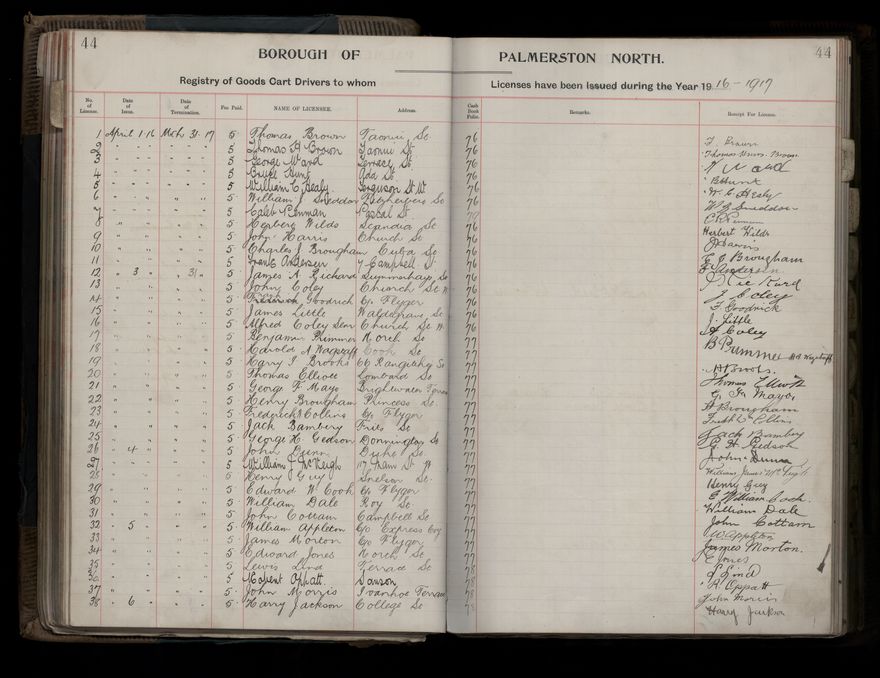 44
44
BOROUGH OF PALMERSTON NORTH.
Registry of Goods Cart Drivers to whom Licenses have been issued during the Year 1916-1917
No. of License. Date of Issue. Date of Termination. Fee Paid. NAME OF LICENSEE. Address. Cash Book Folio. Remarks. Receipt For License.
1 April 1 16 Mch 31 17 5 Thomas Brown Taonui St 76 T. Brown
2 " " " " " " 5 Thomas H Brown Taonui St 76 Thomas Brown
3 " " " " " " 5 George Ward Terrace St 76 Ward
4 " " " " " " 5 Bruce Hunt Ada St. 76 B Hunt
5 " " " " " " 5 William C. Healy Ferguson St W 76 W. C. Healy
6 " " " " " " 5 William J Sneddon 76 W J Sneddon
7 " " " " " " 5 Caleb Penman Pascal St. C Penman
8 " " " " " " 5 Herberg Wilds Scandia St 76 Herbert Wilds
9 " " " " " " 5 John Harris Church St 76 J Harris
10 " " " " " " 5 Charles J Brougham Cuba St 76 C J Brougham
11 " " " " " " 5 Frank Andersen 7 Campbell St 76 F Andersen
12 " 3 " " 31 " 5 James A. Rickard Summerhays St 76
13 " " " " " " 5 John Coley Church St W 76 J Coley
14 " " " " " " 5 Goodrich C/o Flyger 76 F Goodrick
15 " " " " " " 5 James Little Waldegrave St 76 J. Little
16 " " " " " " 5 Alfred Coley Senr Church St W 76 A Coley
17 " " " " " " 5 Benjamin Primmer North St 77 B Primmer
18 " " " " " " 5 Harold A Wagstaff Cook St 77 H A Wagstaff
19 " " " " " " 5 Harry P. Brooks 66 Rangitikei St 77 H Brooks.
20 " " " " " " 5 Thomas Elliott Lombard St 77 Thomas Elliott
21 " " " " " " 5 George F. Mayo Brightwater Terrace 77 G. F. Mayo
22 " " " " " " 5 Henry Brougham Princess St. 77 H Brougham
23 " " " " " " 5 Frederick Collins C/o Flyger 77
24 " " " " " " 5 Jack Bambery St 77 Jack Bambery
25 " " " " " " 5 George H. Gedson Donnington St 77 G. H.
26 " 4 " " " " 5 John Dunn Duke St 77 John Dunn
27 " " " " " " 5 William J McHugh 117 Main St W 77 William James McHugh
28 " " " " " " 5 Henry Guy Snelson St. 77 Henry Guy
29 " " " " " " 5 Edward W Cook C/o Flyger 77 E William Cook.
30 " " " " " " 5 William Dale Roy St 77 William Dale
31 " " " " " " 5 John Cottam Campbell St 77 John Cottam
32 " 5 " " " " 5 William Appleton C/o Express Coy 77 W Appleton
33 " " " " " " 5 James Morton C/o Flyger 77 James Morton.
34 " " " " " " 5 Edward Jones North St 77 E Jones
35 " " " " " " 5 Lewis Lind Terrace St 78 L Lind
36 " " " " " " 5 Oppatt. Dawson 78 R Oppatt
37 " " " " " " 5 John Morris Ivanhoe Terrace 78 John Morris
38 " 6 " " " " 5 Harry Jackson College St 78 Harry Jackson